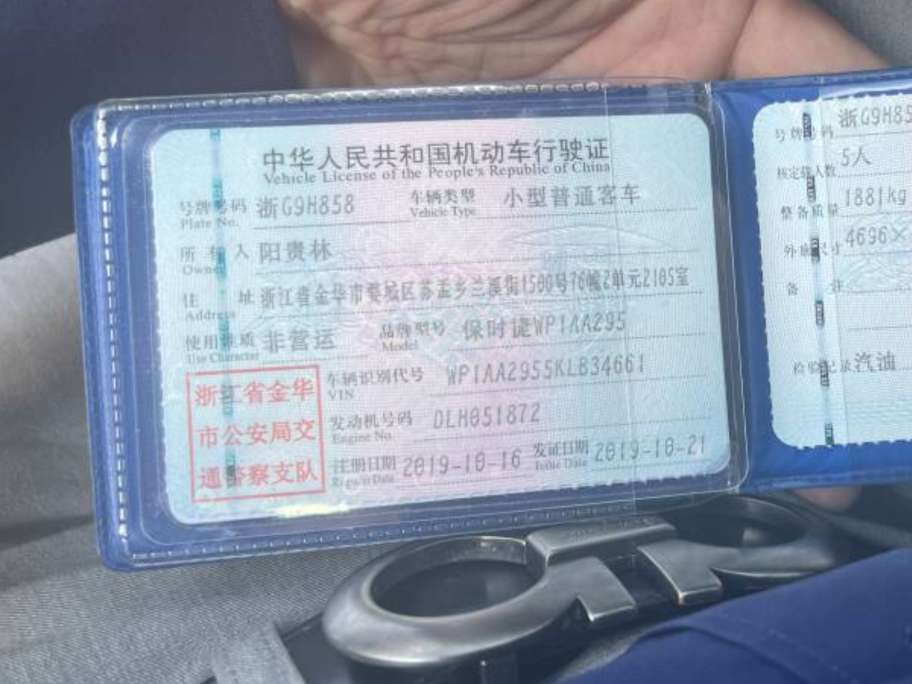 中华人民共和国机动车行驶证
Vehicle License of the People's Republic of China
号牌号码 浙G9H858 车辆类型 小型普通客车
Plate No. Vehicle Type
所有人 阳贵林
Owner
住址 浙江省金华市婺城区苏孟乡兰溪街1500号76幢2单元2105室
Address
使用性质 非营运 品牌型号 保时捷WP1AA295
Use Character Model
浙江省金华
市公安局交
通警察支队
车辆识别代号 WP1AA2955KLB34661
VIN
发动机号码 DLH051872
Engine No.
注册日期 2019-10-16 发证日期 2019-10-21
Register Date Issue Date
号牌号码 浙G9H85
核定载人数 5人
整备质量 1881kg
外廓尺寸 4696×
备注
检验记录 汽油